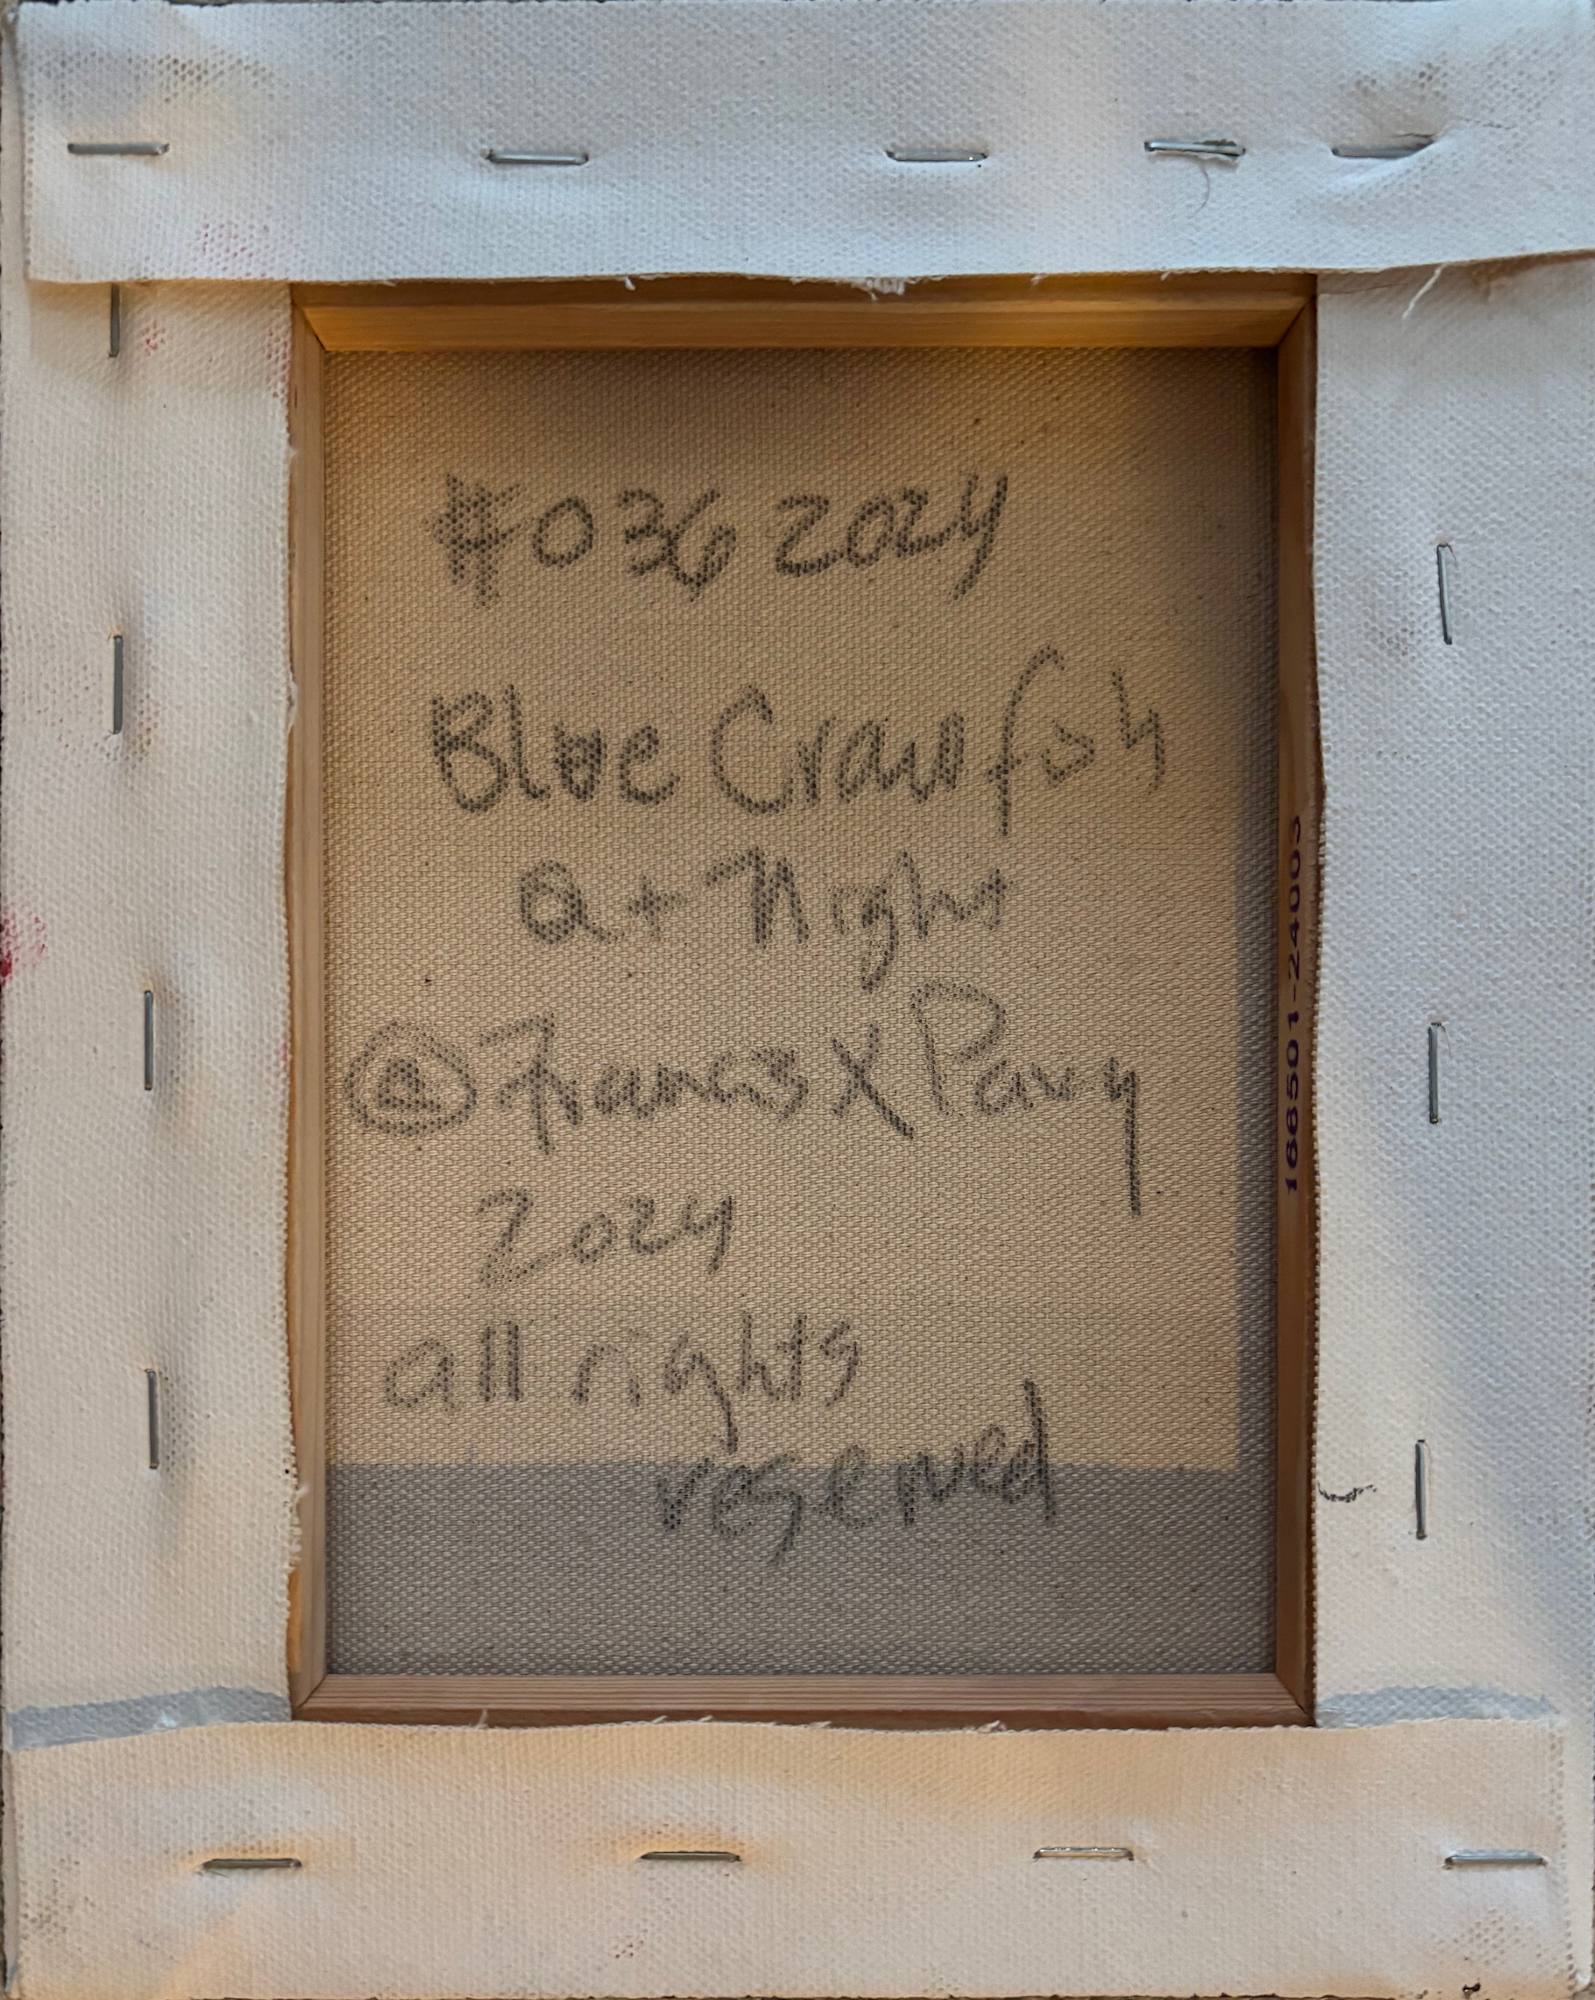 #036 2024
Blue Crawfish
at Night
© Francis X Pavy
2024
all rights
reserved
166501-24003